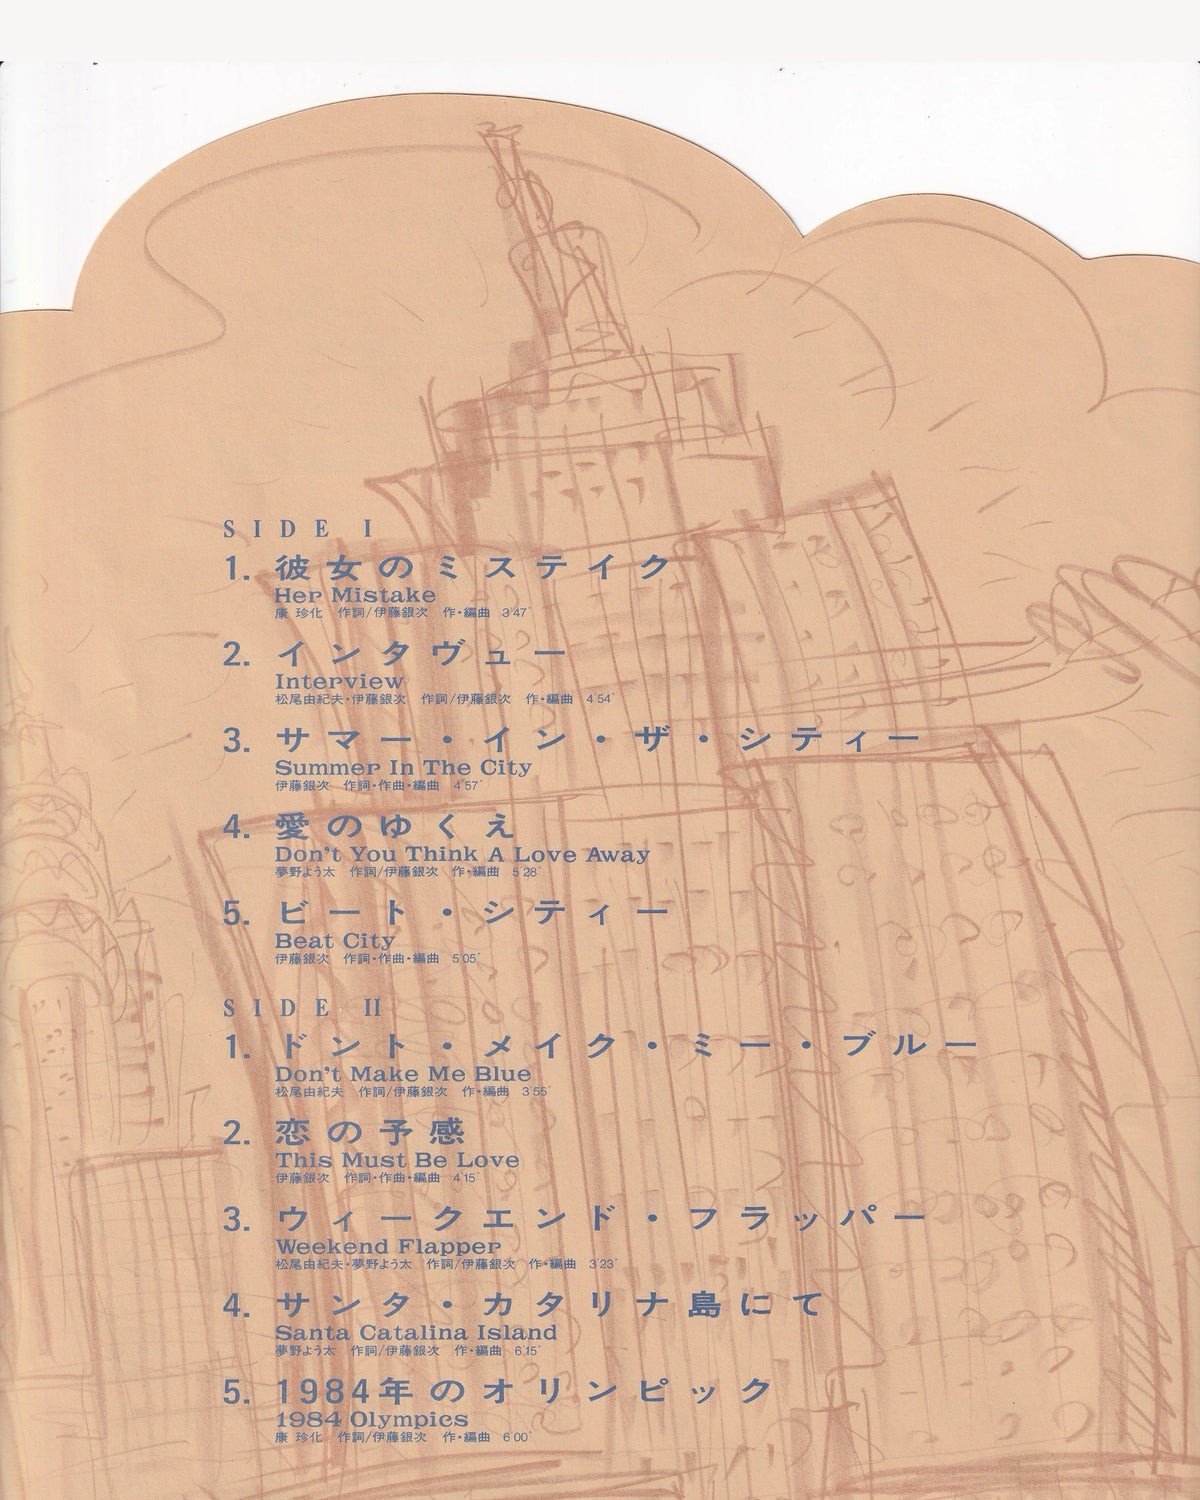 SIDE I
1. 彼女のミステイク
Her Mistake
康 珍化 作詞/伊藤銀次 作・編曲 3'47"
2. インタヴュー
Interview
松尾由紀夫・伊藤銀次 作詞/伊藤銀次 作・編曲 4'54"
3. サマー・イン・ザ・シティー
Summer In The City
伊藤銀次 作詞・作曲・編曲 4'57"
4. 愛のゆくえ
Don't You Think A Love Away
夢野よう太 作詞/伊藤銀次 作・編曲 5'28"
5. ビート・シティー
Beat City
伊藤銀次 作詞・作曲・編曲 5'05"
SIDE II
1. ドント・メイク・ミー・ブルー
Don't Make Me Blue
松尾由紀夫 作詞/伊藤銀次 作・編曲 3'55"
2. 恋の予感
This Must Be Love
伊藤銀次 作詞・作曲・編曲 4'15"
3. ウィークエンド・フラッパー
Weekend Flapper
松尾由紀夫・夢野よう太 作詞/伊藤銀次 作・編曲 3'23"
4. サンタ・カタリナ島にて
Santa Catalina Island
夢野よう太 作詞/伊藤銀次 作・編曲 6'15"
5. 1984年のオリンピック
1984 Olympics
康 珍化 作詞/伊藤銀次 作・編曲 6'00"